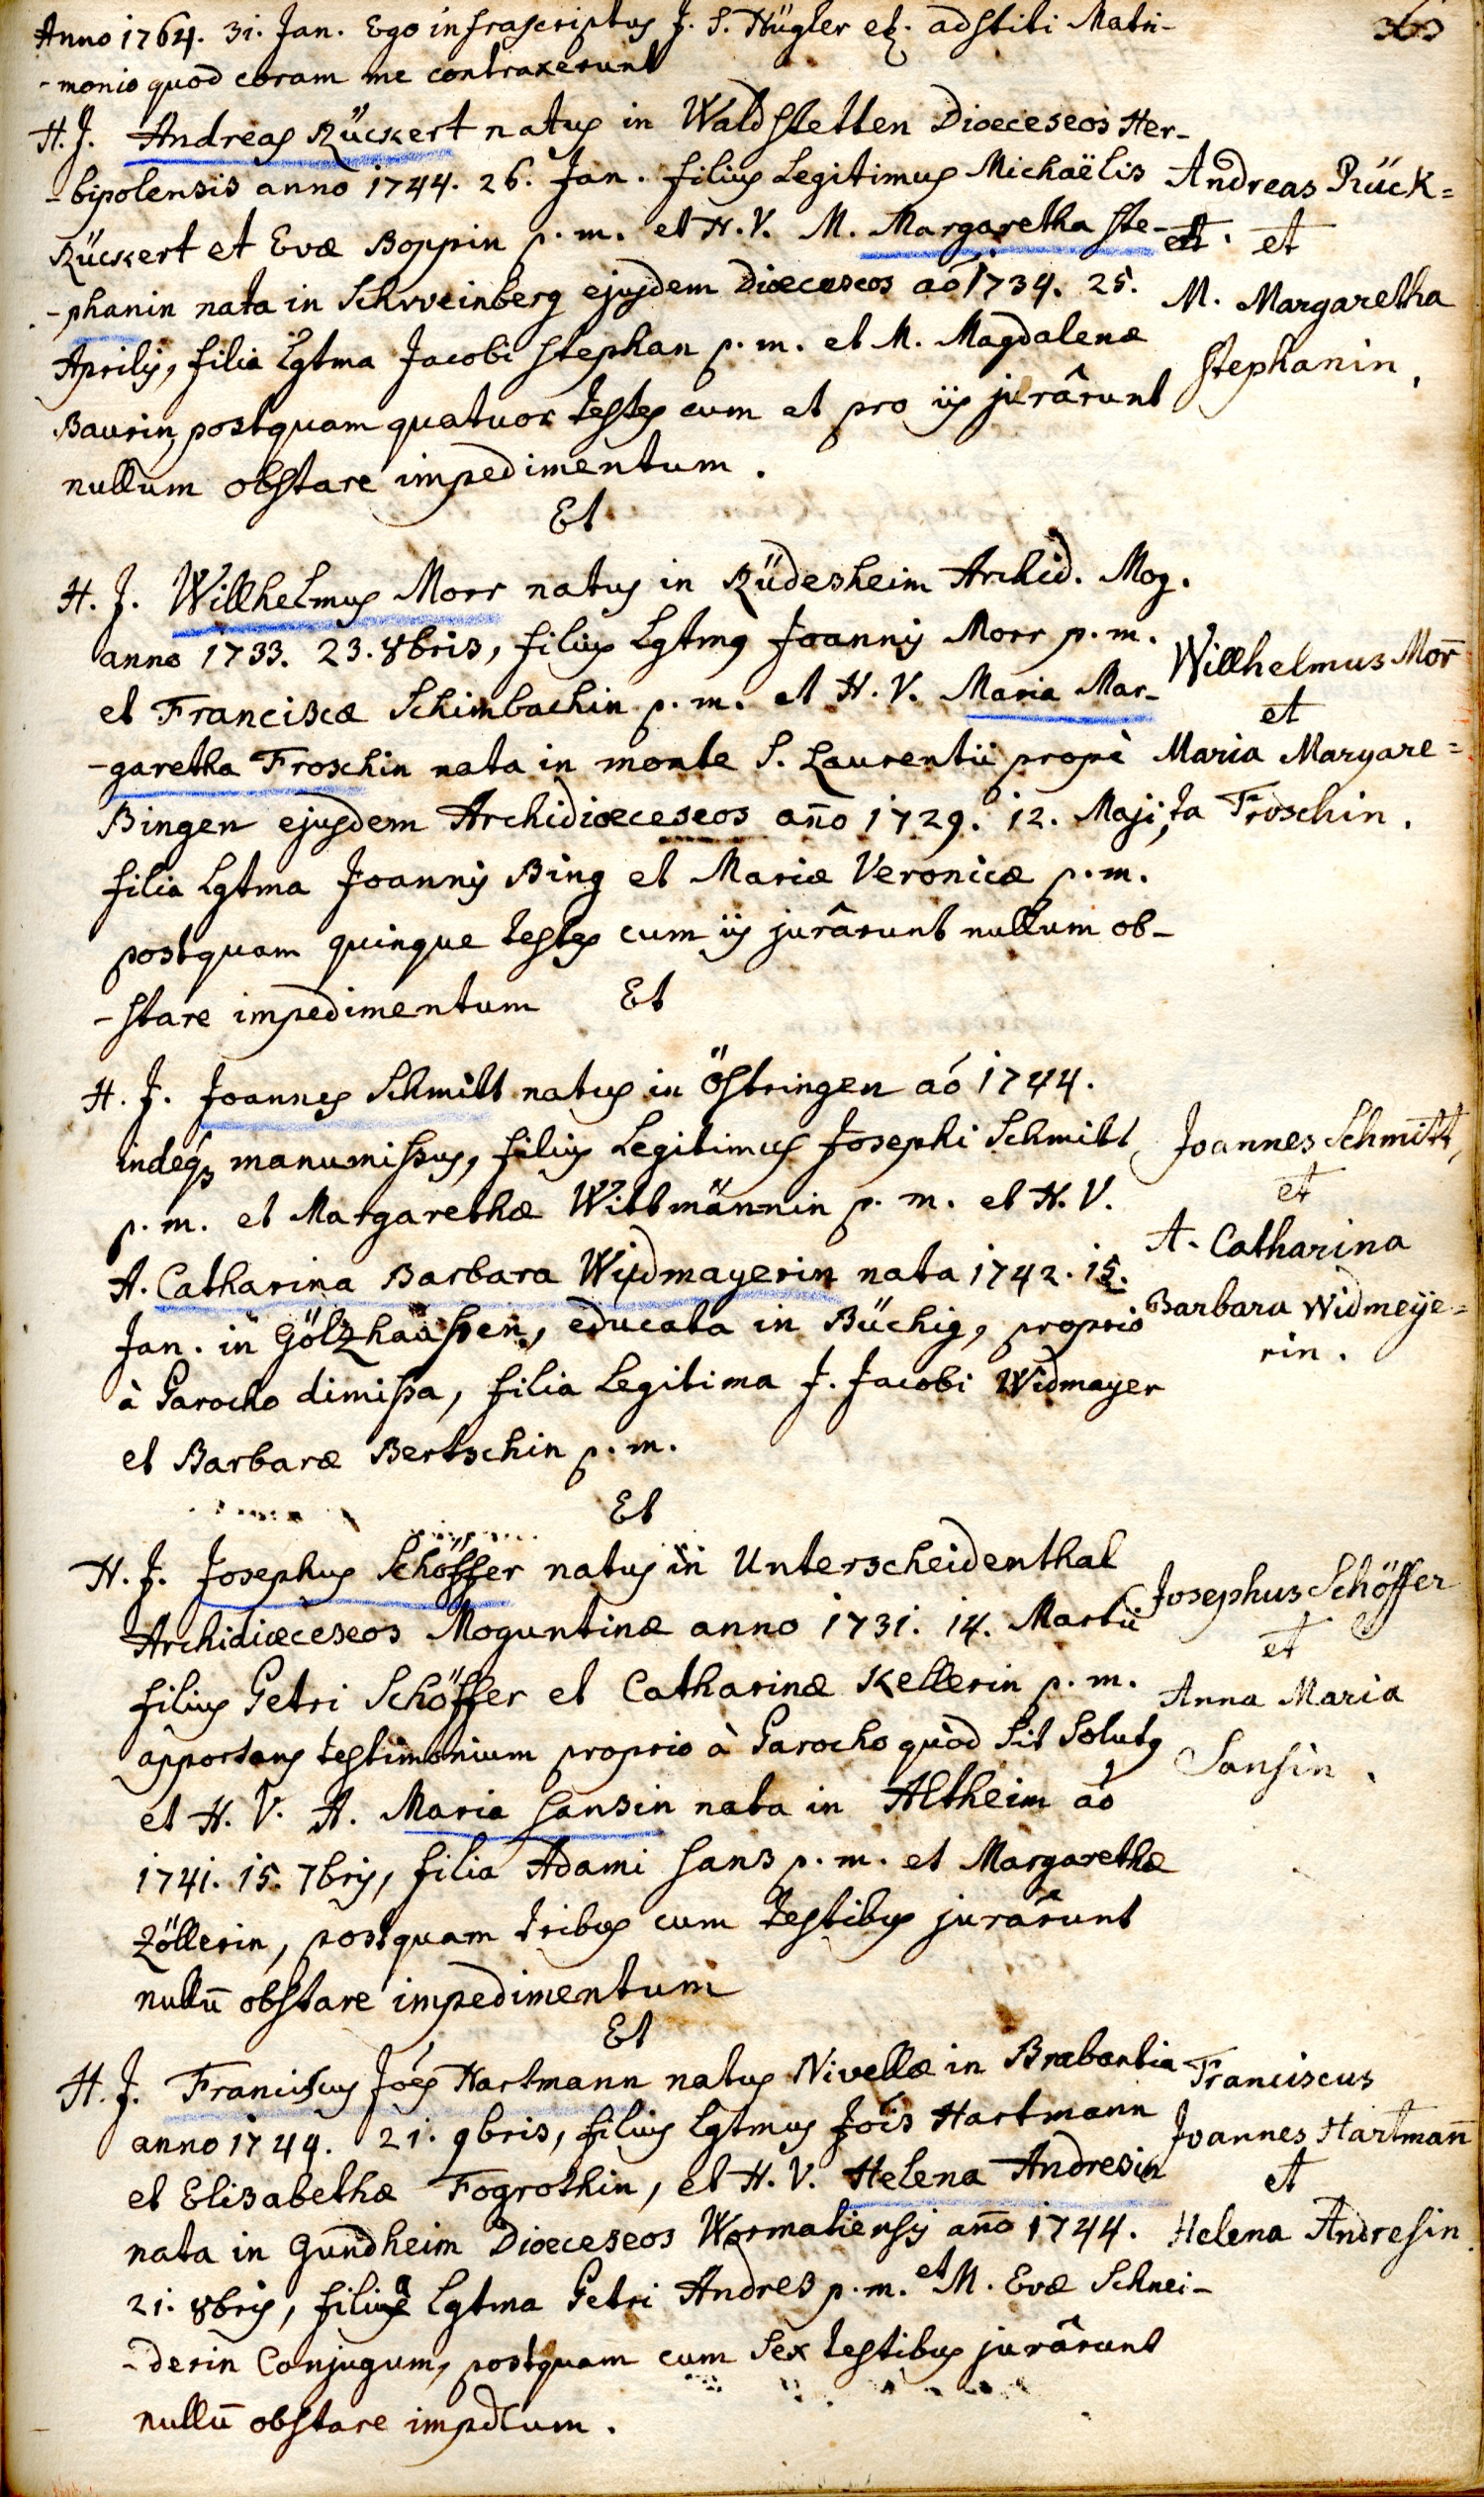 363
Anno 1764. 31. Jan. Ego infrascriptus J. S. Hügler etz. adstiti Matri-
-monio quod coram me contraxerunt
H. J. Andreas Rückert natus in Waldstetten Dioeceseos Her-
-bipolensis anno 1744. 26. Jan. filius Legitimus Michaëlis
Rückert et Evæ Boppin p. m. et H. V. M. Margaretha Ste-
-phanin nata in Schweinberg ejusdem Dioeceseos aõ 1734. 25.
Aprilis, filia Lgtma Jacobi Stephan p. m. et M. Magdalenæ
Baurin, postquam quatuor testes cum et pro iis jurârunt
nullum obstare impedimentum.
Andreas Rück=
ert. et
M. Margaretha
Stephanin.
Et
H. J. Willhelmus Morr natus in Rüdesheim Archid. Mog.
anno 1733. 23. 8bris, filius Lgtmq Joannis Morr p. m.
et Franciscæ Schimbachin p. m. et H. V. Maria Mar-
-garetha Froschin nata in monte S. Laurentii propè
Bingen ejusdem Archidiœceseos año 1729. 12. Maji,
filia Lgtma Joannis Bing et Mariæ Veronicæ p. m.
postquam quinque testes cum iis jurârunt nullum ob-
-stare impedimentum Et
Willhelmus Mor̄
et
Maria Margare=
ta Froschin.
H. J. Joannes Schmitt natus in Östringen aó 1744.
indeq manumissus, filius Legitimus Josephi Schmitt
p. m. et Margarethæ Wittmännin p. m. et H. V.
A. Catharina Barbara Widmayerin nata 1742. 15.
Jan. in Gölzhaussen, educata in Büchig, proprio
à Parocho dimissa, filia Legitima J. Jacobi Widmayer
et Barbaræ Bertschin p. m.
Joannes Schmitt,
et
A. Catharina
Barbara Widmeÿe=
rin.
Et
H. J. Josephus Schöffer natus in Unterscheidenthal
Archidiœceseos Moguntinæ anno 1731. 14. Martii
filius Petri Schöffer et Catharinæ Kellerin p. m.
apportans testimonium proprio à Parocho quòd sit solutq
et H. V. A. Maria Sansin nata in Altheim aó
1741. 15. 7bris, filia Adami Sans p. m. et Margarethæ
Zöllerin, postquam tribus cum testibus jurârunt
nullū obstare impedimentum
Josephus Schöffer
et
Anna Maria
Sansin.
Et
H. J. Franciscus Jóes Hartmann natus Nivellæ in Brabantia
anno 1744. 21. 9bris, filius Lgtmus Jóis Hartmann
et Elisabethæ Fogrothin, et H. V. Helena Andresin
nata in Gundheim Dioeceseos Wormatiensis año 1744.
21. 8bris, filia Lgtma Petri Andres p. m. et M. Evæ Schnei-
-derin Conjugum, postquam cum sex testibus jurârunt
nullū obstare impdtum.
Franciscus
Joannes Hartman̄
et
Helena Andresin.